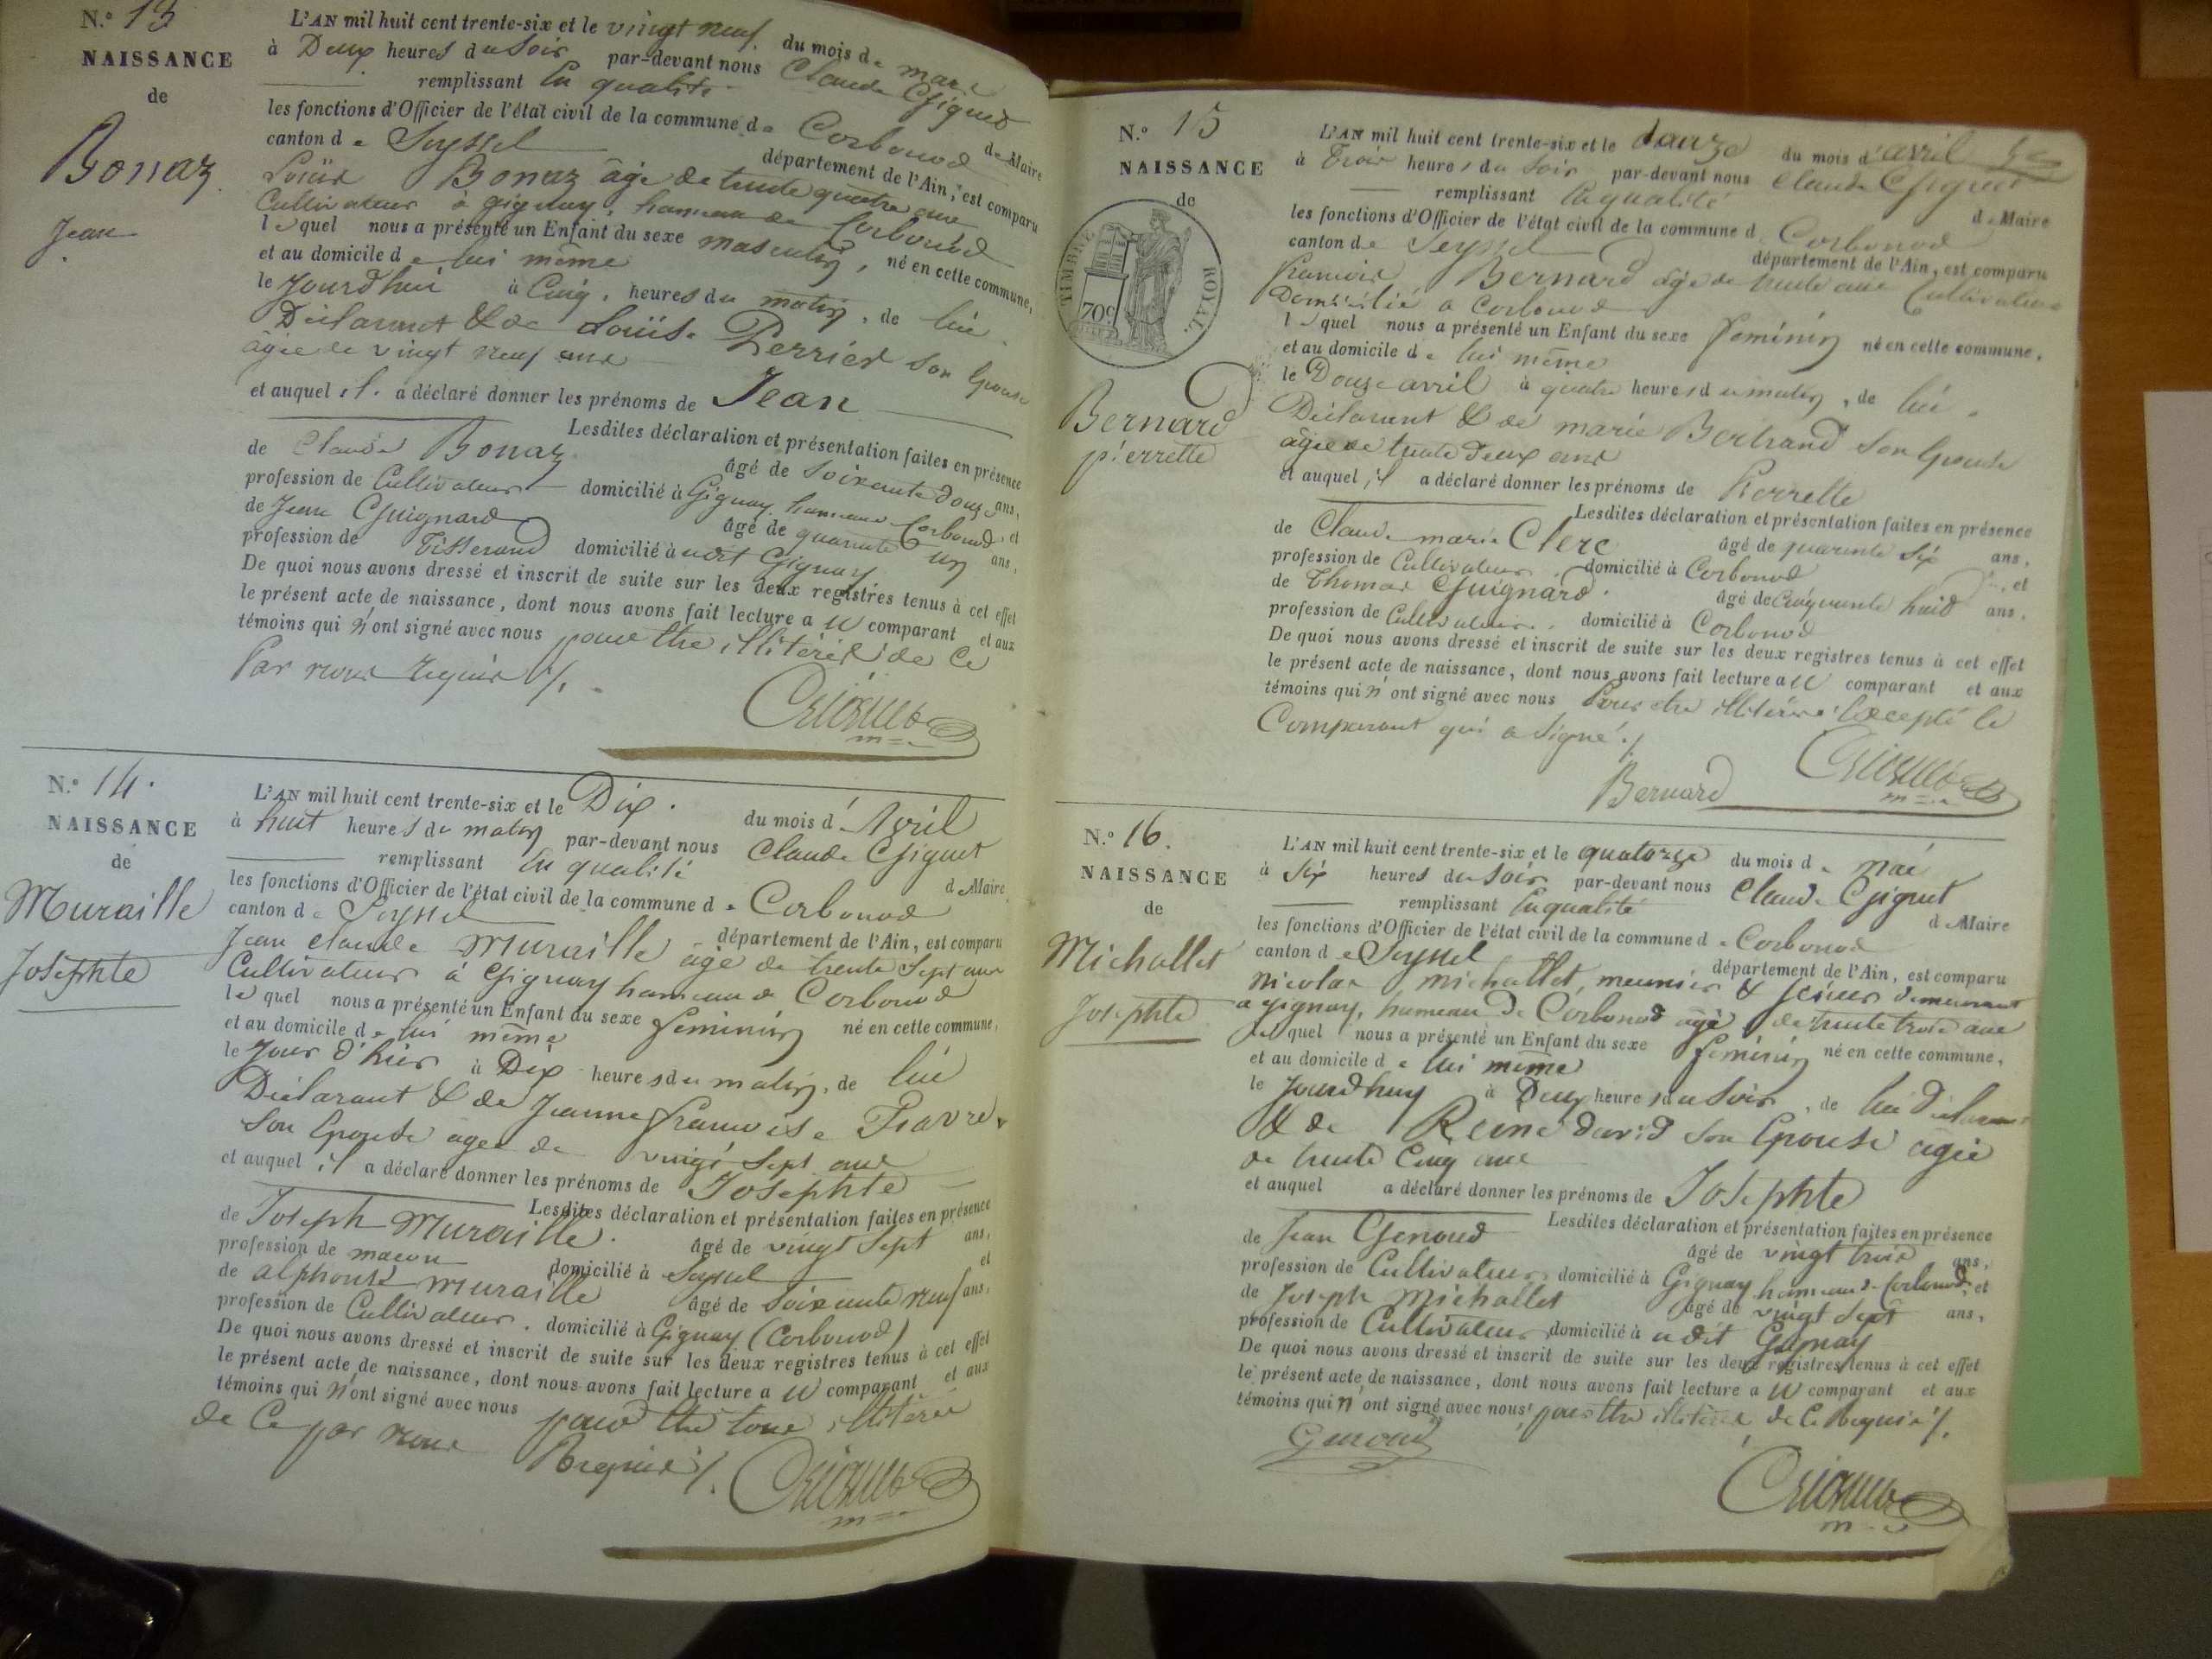 N.º 13
NAISSANCE
de
Bonaz
Jean
L'AN mil huit cent trente-six et le vingt neuf du mois de mars
à Deux heures du Soir par-devant nous Claude Gignet
remplissant En qualité de Maire
les fonctions d'Officier de l'état civil de la commune de Corbonod
canton de Seyssel département de l'Ain, est comparu
Louis Bonaz âgé de trente quatre ans
Cultivateur à gignay, hameau de Corbonod
lequel nous a présenté un Enfant du sexe masculin, né en cette commune,
et au domicile de lui même
le Jourdhui à Cinq heures du matin, de lui
Déclarant & de Louise Perrier son Epouse
âgée de vingt neuf ans
et auquel il a déclaré donner les prénoms de Jean
Lesdites déclaration et présentation faites en présence
de Claude Bonaz âgé de Soixante douze ans,
profession de Cultivateur domicilié à Gignay hameau Corbonod, et
de Jean Guignard âgé de quarante un ans,
profession de Tisserand domicilié à udit Gignay
De quoi nous avons dressé et inscrit de suite sur les deux registres tenus à cet effet
le présent acte de naissance, dont nous avons fait lecture a u comparant et aux
témoins qui n'ont signé avec nous pour être illitérés de ce
Par nous requis ./.
N.º 14.
NAISSANCE
de
Muraille
Josephte
L'AN mil huit cent trente-six et le Dix du mois d'Avril
à huit heures du matin par-devant nous Claude Gignet
remplissant En qualité de Maire
les fonctions d'Officier de l'état civil de la commune de Corbonod
canton de Seyssel département de l'Ain, est comparu
Jean claude Muraille âgé de trente Sept ans
Cultivateur à Gignay hameau de Corbonod
lequel nous a présenté un Enfant du sexe feminin né en cette commune,
et au domicile de lui même
le Jour d'hier à Dix heures du matin, de lui
Déclarant & de Jeanne françoise Favre
Son Epouse agée de vingt Sept ans
et auquel il a déclaré donner les prénoms de Josephte
Lesdites déclaration et présentation faites en présence
de Joseph Muraille âgé de vingt Sept ans,
profession de maçon domicilié à Seyssel et
de alphonse Muraille âgé de Soixante neuf ans,
profession de Cultivateur domicilié à Gignay (Corbonod)
De quoi nous avons dressé et inscrit de suite sur les deux registres tenus à cet effet
le présent acte de naissance, dont nous avons fait lecture a u comparant et aux
témoins qui n'ont signé avec nous pour être tous illitérés
de Ce par nous Requis ./.
N.º 15
NAISSANCE
de
TIMBRE ROYAL.
70c
Bernard
pierrette
L'AN mil huit cent trente-six et le douze du mois d'avril
à Trois heures du Soir par-devant nous Claude Gignet
remplissant En qualité de Maire
les fonctions d'Officier de l'état civil de la commune d Corbonod
canton de Seyssel département de l'Ain, est comparu
francois Bernard âgé de trente ans Cultivateur
Domicilié a Corbonod
lequel nous a présenté un Enfant du sexe feminin né en cette commune,
et au domicile de lui même
le Douze avril à quatre heures du matin, de lui
Déclarant & de marie Bertrand Son Epouse
âgée de trente deux ans
et auquel il a déclaré donner les prénoms de Pierrette
Lesdites déclaration et présentation faites en présence
de Claude marie Clerc âgé de quarante Six ans,
profession de Cultivateur domicilié à Corbonod, et
de Thomas Guignard âgé de Cinquante huit ans,
profession de Cultivateur domicilié à Corbonod
De quoi nous avons dressé et inscrit de suite sur les deux registres tenus à cet effet
le présent acte de naissance, dont nous avons fait lecture a u comparant et aux
témoins qui n'ont signé avec nous Pour être illitérés Excepté le
Comparant qui a Signé ./.
Bernard
N.º 16.
NAISSANCE
de
Michallet
Josephte
L'AN mil huit cent trente-six et le quatorze du mois de mai
à Six heures du Soir par-devant nous Claude Gignet
remplissant En qualité de Maire
les fonctions d'Officier de l'état civil de la commune de Corbonod
canton de Seyssel département de l'Ain, est comparu
Nicolas Michallet, meunier & scieur demeurant
a gignay, hameau de Corbonod âgé de trente trois ans
lequel nous a présenté un Enfant du sexe feminin né en cette commune,
et au domicile de lui même
le Jourdhuy à Deux heures du Soir, de lui Déclarant
& de Reine david son Epouse agée
de trente Cinq ans
et auquel a déclaré donner les prénoms de Josephte
Lesdites déclaration et présentation faites en présence
de Jean Genoud âgé de vingt trois ans,
profession de Cultivateur domicilié à Gignay hameau de Corbonod, et
de Joseph Michallet âgé de vingt Sept ans,
profession de Cultivateur domicilié à udit Gignay
De quoi nous avons dressé et inscrit de suite sur les deux registres tenus à cet effet
le présent acte de naissance, dont nous avons fait lecture a u comparant et aux
témoins qui n'ont signé avec nous pour être illitérés de Ce Requis ./.
Genoud